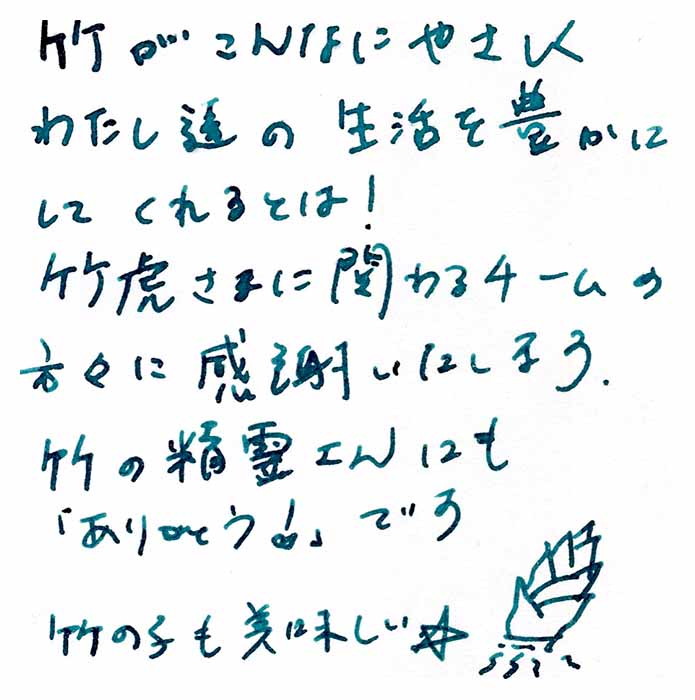 竹がこんなにやさしく
わたし達の生活を豊かに
してくれるとは!
竹虎さまに関わるチームの
方々に感謝いたします。
竹の精霊さんにも
「ありがとう!」です
竹の子も美味しい☆